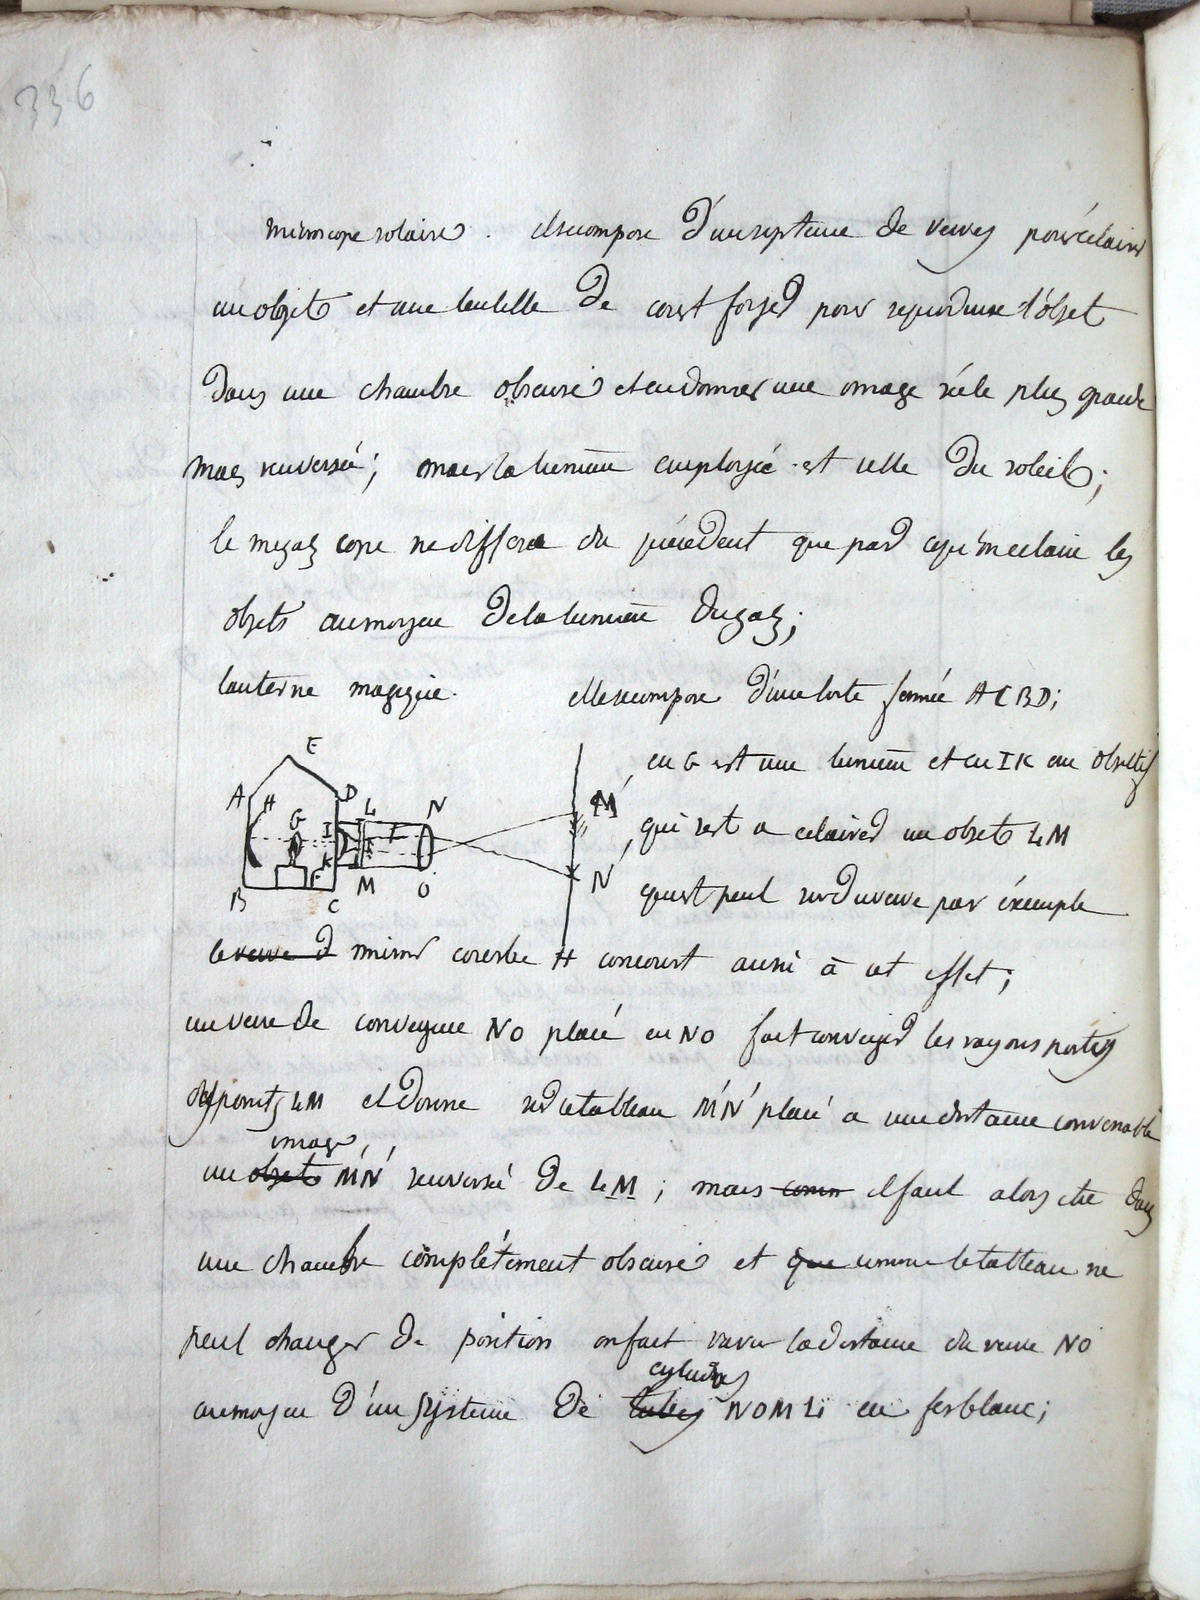 336
microscope solaire. il se compose d'un systeme de verres pour éclairer
un objet et une lentille de court foyer pour reproduire l'objet
dans une chambre obscure et en donner une image réele plus grande
mais renversée; mais la lumière employée est celle du soleil;
le megascope ne differe du précédent que par ce qu'on eclaire les
objets au moyen de la lumière du gaz;
lanterne magique. elle se compose d'une boite fermée ACBD;
E
A H D L N
G I
K
F
B C M O
M'
N'
en G est une lumière et en IK un objectif
qui sert a eclairer un objet LM
qui est peut sur du verre par éxemple
le verre d miroir courbe H concourt aussi à cet effet;
un verre de convergence NO placé en NO fait converger les rayons partis
des points LM et donne sur le tableau M'N' placé a une distance convenable
image
un objet M'N' renversée de LM; mais comm il faut alors etre dans
une chambre complétement obscure et que comme le tableau ne
peut changer de position on fait varier la distance du verre NO
cylindres
au moyen d'un systeme de tubes NOML en ferblanc;